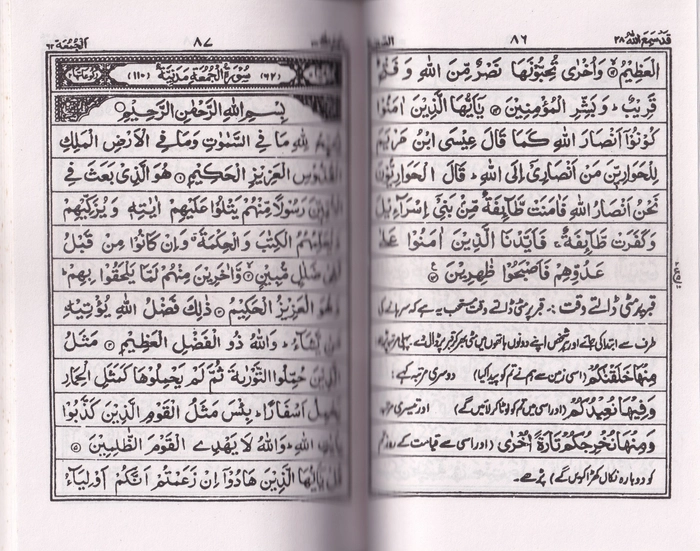 قدسمع الله ٢٨
٨٦
الْعَظِيْمُ وَاُخْرٰى تُحِبُّوْنَهَا نَصْرٌ مِّنَ اللهِ وَفَتْحٌ
قَرِيْبٌ وَبَشِّرِ الْمُؤْمِنِيْنَ يٰٓاَيُّهَا الَّذِيْنَ اٰمَنُوْا
كُوْنُوْٓا اَنْصَارَ اللهِ كَمَا قَالَ عِيْسَى ابْنُ مَرْيَمَ
لِلْحَوَارِيّٖنَ مَنْ اَنْصَارِيْٓ اِلَى اللهِ قَالَ الْحَوَارِيُّوْنَ
نَحْنُ اَنْصَارُ اللهِ فَاٰمَنَتْ طَّآئِفَةٌ مِّنْۢ بَنِيْٓ اِسْرَآءِيْلَ
وَكَفَرَتْ طَّآئِفَةٌ فَاَيَّدْنَا الَّذِيْنَ اٰمَنُوْا عَلٰى
عَدُوِّهِمْ فَاَصْبَحُوْا ظٰهِرِيْنَ
قبر پر مٹی ڈالتے وقت :۔ قبر پر مٹی ڈالتے وقت مستحب یہ ہے کہ سرہانے کی
طرف سے ابتدا کی جائے اور ہر شخص اپنے دونوں ہاتھوں میں مٹی بھر کر قبر پر ڈالدے۔ پہلی مرتبہ پڑھے
مِنْهَا خَلَقْنٰكُمْ (اسی زمین سے ہم نے تم کو پیدا کیا) دوسری مرتبہ کہے:
وَفِيْهَا نُعِيْدُكُمْ (اور اسی میں ہم تم کو لوٹا کر لائیں گے) اور تیسری مرتبہ
وَمِنْهَا نُخْرِجُكُمْ تَارَةً اُخْرٰى (اور اسی سے قیامت کے روز تم
کو دوبارہ نکال کھڑا کریں گے) پڑھے۔
٨٧
الجمعة ٦٢
(٦٢) سُوْرَةُ الْجُمُعَةِ مَدَنِيَّةٌ (١١٠)
بِسْمِ اللهِ الرَّحْمٰنِ الرَّحِيْمِ
يُسَبِّحُ لِلّٰهِ مَا فِي السَّمٰوٰتِ وَمَا فِي الْاَرْضِ الْمَلِكِ
الْقُدُّوْسِ الْعَزِيْزِ الْحَكِيْمِ هُوَ الَّذِيْ بَعَثَ فِي
الْاُمِّيّٖنَ رَسُوْلًا مِّنْهُمْ يَتْلُوْا عَلَيْهِمْ اٰيٰتِهٖ وَيُزَكِّيْهِمْ
وَيُعَلِّمُهُمُ الْكِتٰبَ وَالْحِكْمَةَ وَاِنْ كَانُوْا مِنْ قَبْلُ
لَفِيْ ضَلٰلٍ مُّبِيْنٍ وَّاٰخَرِيْنَ مِنْهُمْ لَمَّا يَلْحَقُوْا بِهِمْ
وَهُوَ الْعَزِيْزُ الْحَكِيْمُ ذٰلِكَ فَضْلُ اللهِ يُؤْتِيْهِ
مَنْ يَّشَآءُ وَاللهُ ذُو الْفَضْلِ الْعَظِيْمِ مَثَلُ
الَّذِيْنَ حُمِّلُوا التَّوْرٰىةَ ثُمَّ لَمْ يَحْمِلُوْهَا كَمَثَلِ الْحِمَارِ
يَحْمِلُ اَسْفَارًا بِئْسَ مَثَلُ الْقَوْمِ الَّذِيْنَ كَذَّبُوْا
بِاٰيٰتِ اللهِ وَاللهُ لَا يَهْدِي الْقَوْمَ الظّٰلِمِيْنَ
قُلْ يٰٓاَيُّهَا الَّذِيْنَ هَادُوْٓا اِنْ زَعَمْتُمْ اَنَّكُمْ اَوْلِيَآءُ